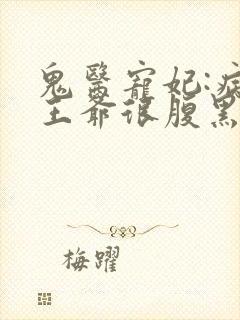 鬼醫寵妃:病
王爺很腹黑
梅躍